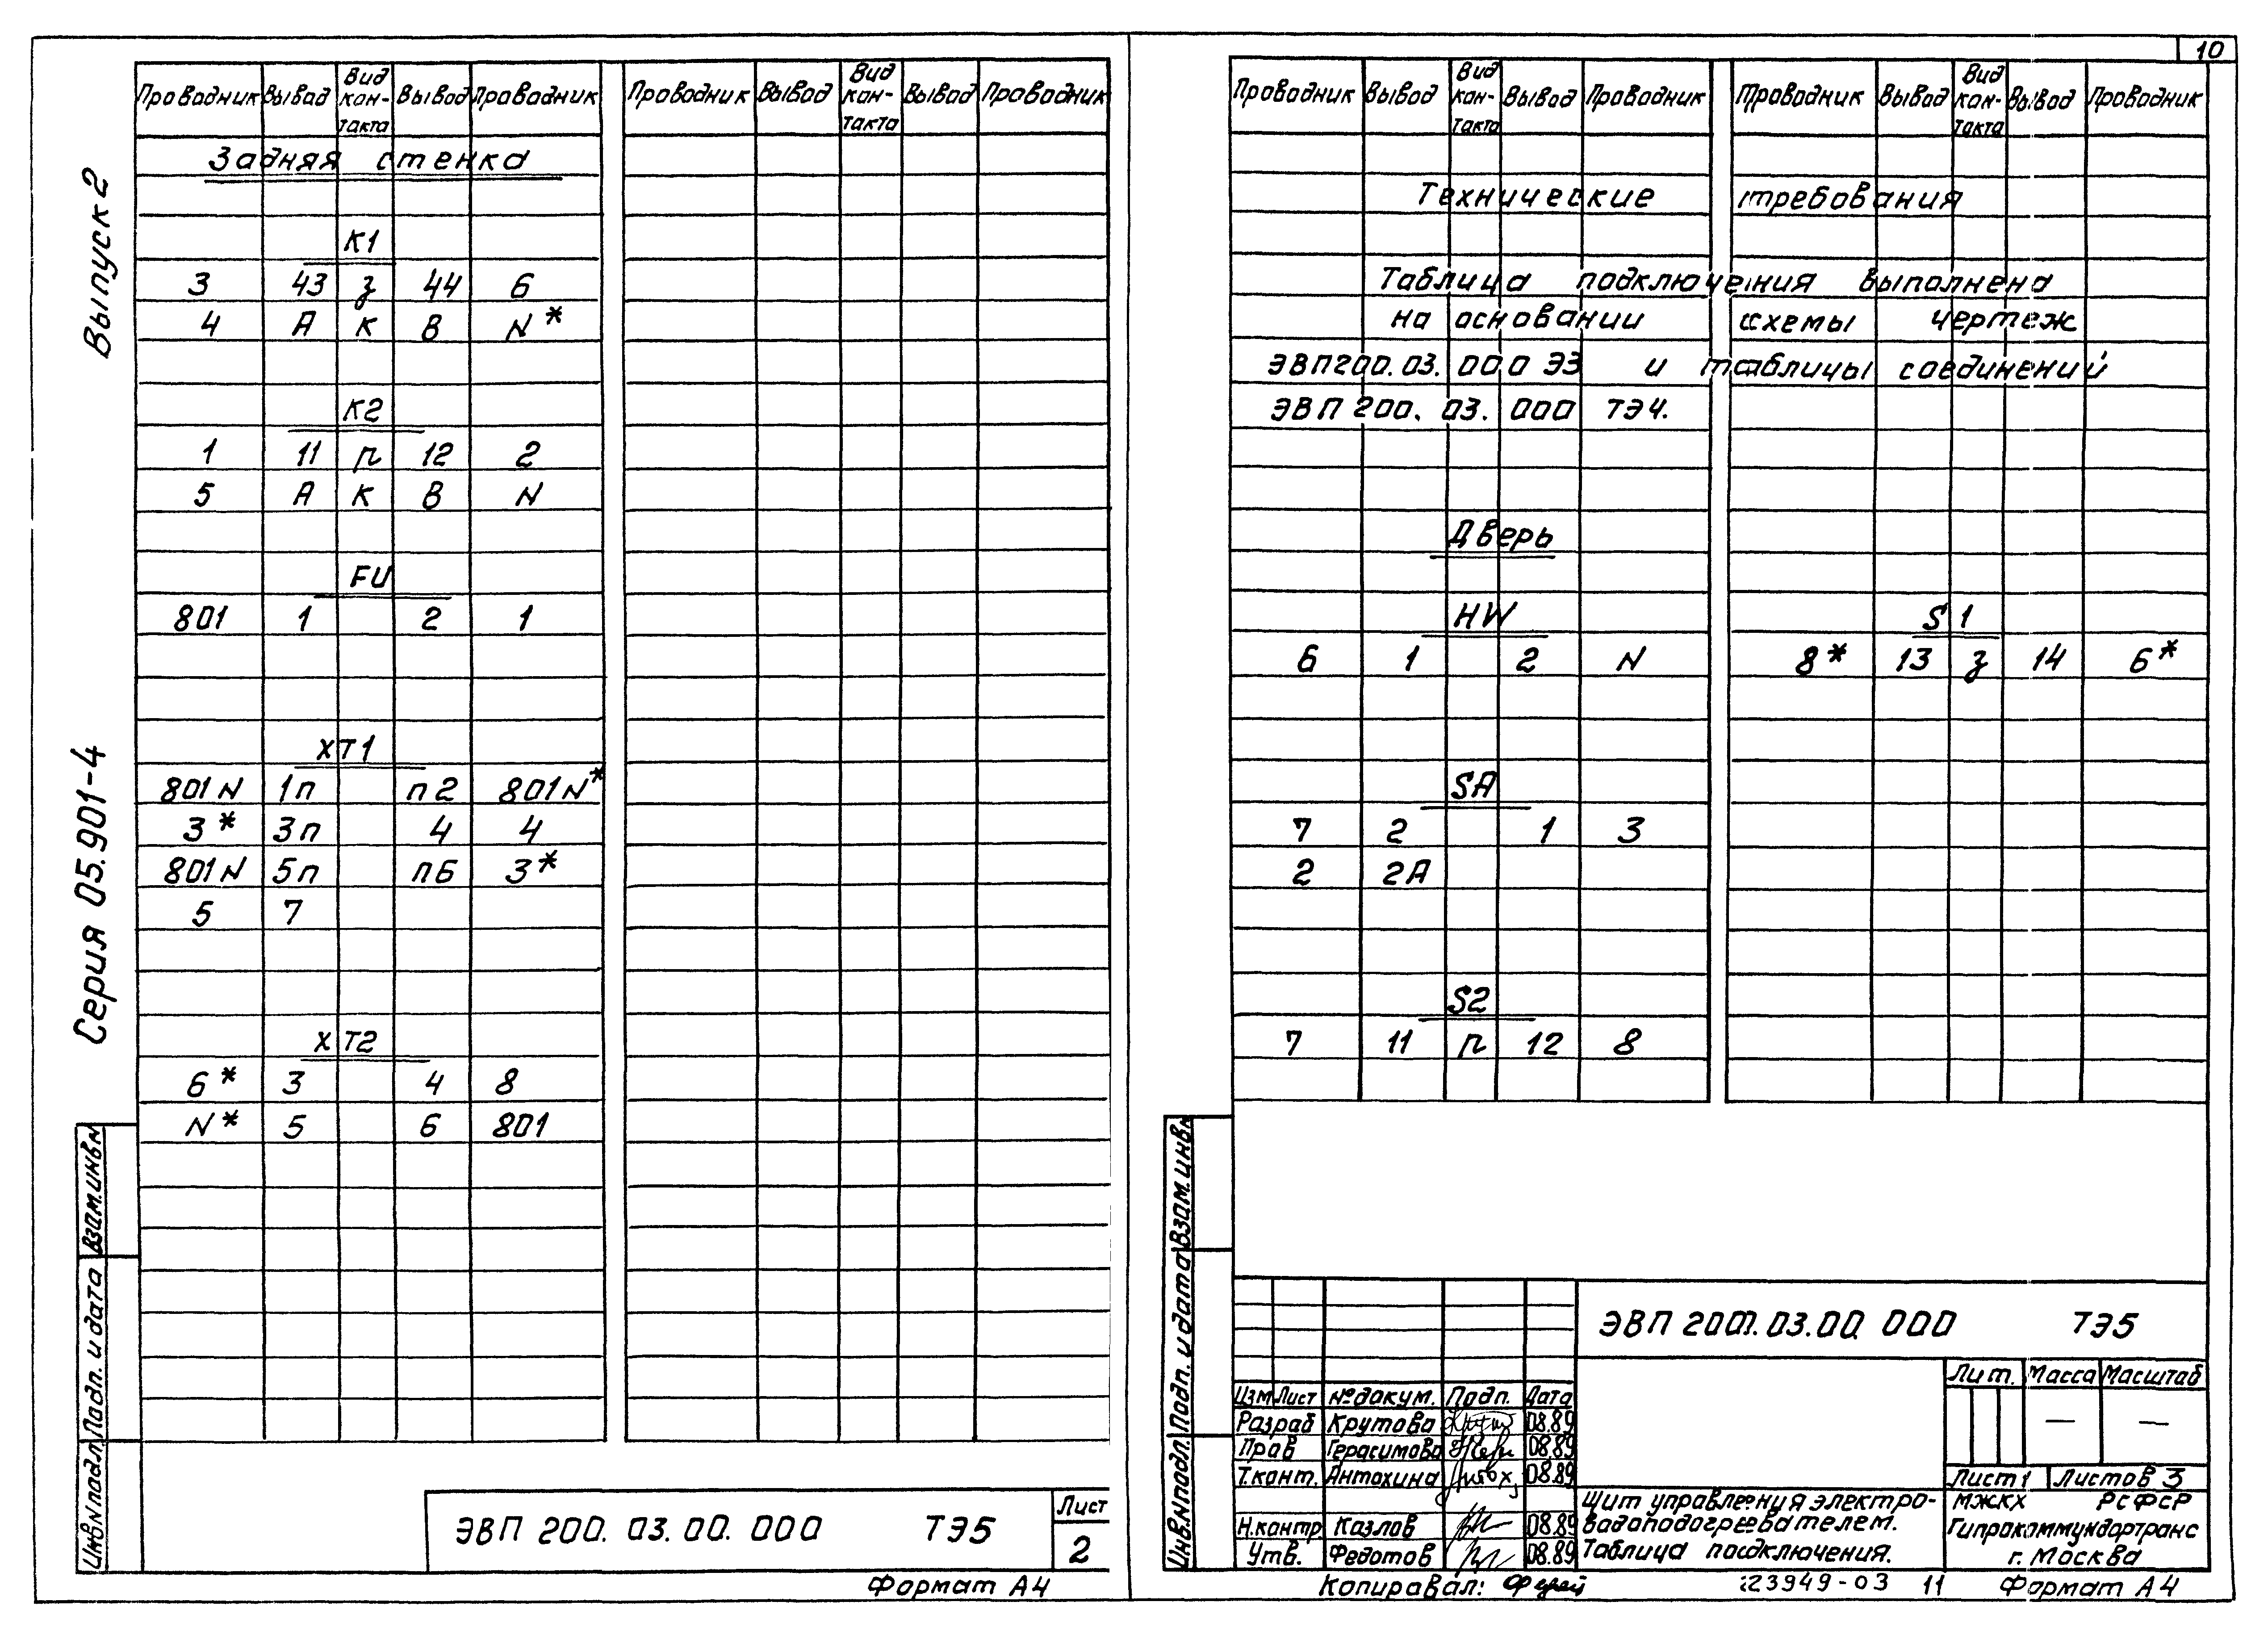 10
Выпуск 2
Серия 05.901-4
Проводник Вывод Вид кон-такта Вывод Проводник Проводник Вывод Вид кон-такта Вывод Проводник
Задняя стенка
К1
3 43 з 44 6
4 А К В N*
К2
1 11 р 12 2
5 А К В N
FU
801 1 2 1
ХТ1
801N 1п п2 801N*
3* 3п 4 4
801N 5п п6 3*
5 7
ХТ2
6* 3 4 8
N* 5 6 801
Взам.инв.N
Подп. и дата
Инв.Nподл.
ЭВП 200. 03. 00. 000 ТЭ5
Лист
2
Формат А4
Проводник Вывод Вид кон-такта Вывод Проводник Проводник Вывод Вид кон-такта Вывод Проводник
Технические требования
Таблица подключения выполнена
на основании схемы чертеж
ЭВП200.03. 000 ЭЗ и таблицы соединений
ЭВП 200. 03. 000 ТЭ4.
Дверь
HW S1
6 1 2 N 8* 13 з 14 6*
SA
7 2 1 3
2 2А
S2
7 11 р 12 8
Взам.инв.N
Подп. и дата
Инв.Nподл.
ЭВП 200.03.00. 000 ТЭ5
Лит. Масса Масштаб
— —
Лист 1 Листов 3
Изм Лист №докум. Подп. Дата
Разраб Крутова 08.89
Пров Герасимова 08.89
Т.конт. Антохина 08.89
Н.контр Козлов 08.89
Утв. Федотов 08.89
Щит управления электро-
водоподогревателем.
Таблица подключения.
МЖКХ РСФСР
Гипрокоммундортранс
г. Москва
Копировал:
23949-03 11
Формат А4